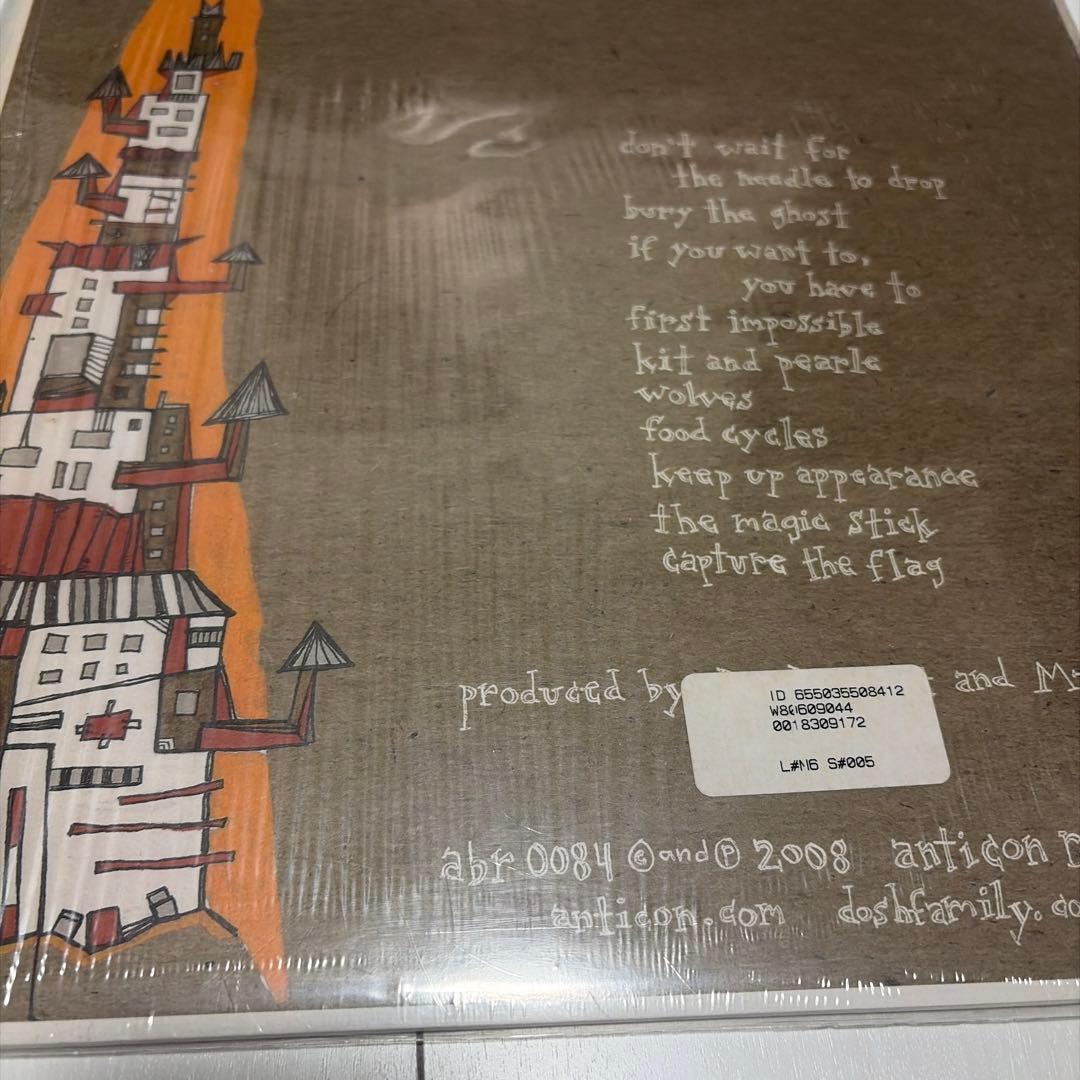 don't wait for
the needle to drop
bury the ghost
if you want to,
you have to
first impossible
kit and pearle
wolves
food cycles
keep up appearance
the magic stick
capture the flag
produced by and
ID 655035508412
0018309172
L#N6 S#005
abr 0084 © and ℗ 2008 anticon
anticon.com doshfamily.co